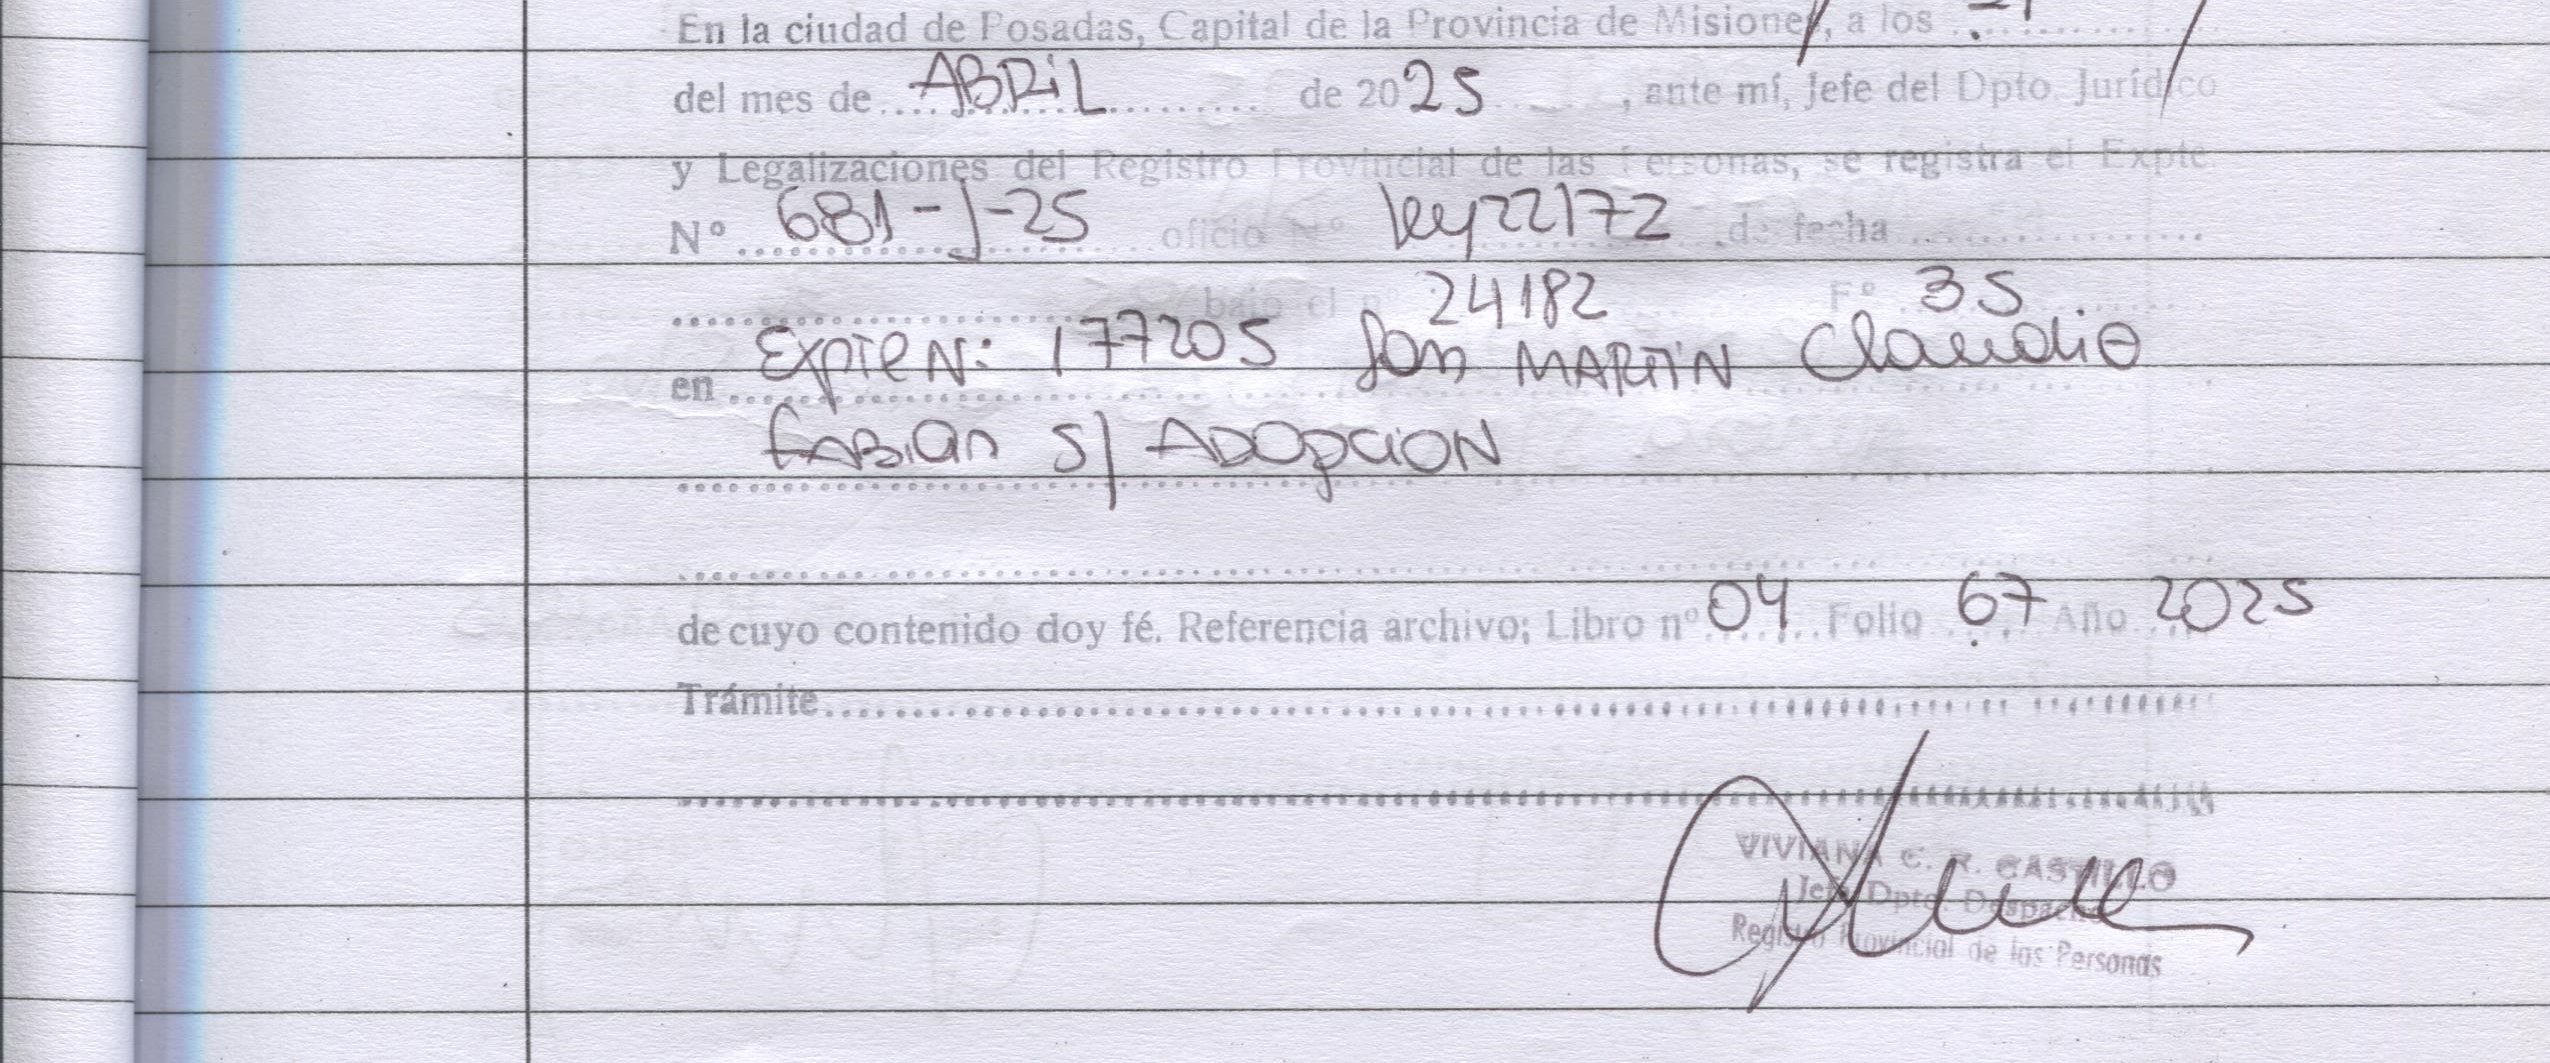 En la ciudad de Posadas, Capital de la Provincia de Misiones, a los
del mes de ABRIL de 2025, ante mí, Jefe del Dpto. Jurídico
y Legalizaciones del Registro Provincial de las Personas, se registra el Expte.
Nº 681-J-25 oficio Nº ley 22172 de fecha
bajo el nº 24182 Fº 35
en Expte N: 177205 San MARTIN Claudio
FABIAN S/ ADOPCION
de cuyo contenido doy fé. Referencia archivo; Libro nº 04 Folio 67 Año 2025
Trámite
VIVIANA C. R. CASTILLO
Jefe Dpto. Despacho
Registro Provincial de las Personas